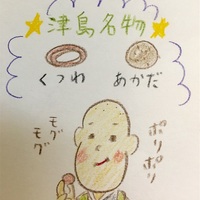 津島名物
くつわ あかだ
モグモグ
ポリポリ